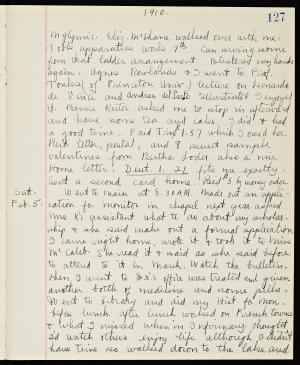 1910.
127
McGlynn's. Eliz. McShane walked over with me.
Took apparatus work 7th. Can swing some
from that ladder arrangement. Blistered my hands
again. Agnes Rowlands & I went to Prof.
(of Princeton Univ.) lecture on Leonardo
da Vinci and Andrea del Sarto. Illustrated. I enjoyed
it. Bessie asked me to stop in afterward
and have some tea and cake. I did & had
a good time. Paid Tiny 1.57 which I owed her.
Rec'd letter, postal, and 8 sweet sample
valentines from Bertha also a nice
Home letter. Dent 1.21 fits me exactly.
Sent a second card home. Rec'd 5 money order.
Sat. Went to main at 8.30 A.M. Made out an appli-
Feb. 5. cation for monitor in chapel next year. Asked
Mrs. K's assistant what to do about my scholar-
ship & she said make out a formal application
I came right home, wrote it & took it to Miss
McCaleb. She read it & said as she said before
to attend to it in March. Watch the bulletin.
When I went to office was treated and given
another bottle of medicine and some pills.
Went to Library and did my Hist for Mon.
before lunch. After lunch worked on French
& what I missed when in Infirmary. Thought
I'd watch others enjoy life although I didn't
have time so walked down to the lake and